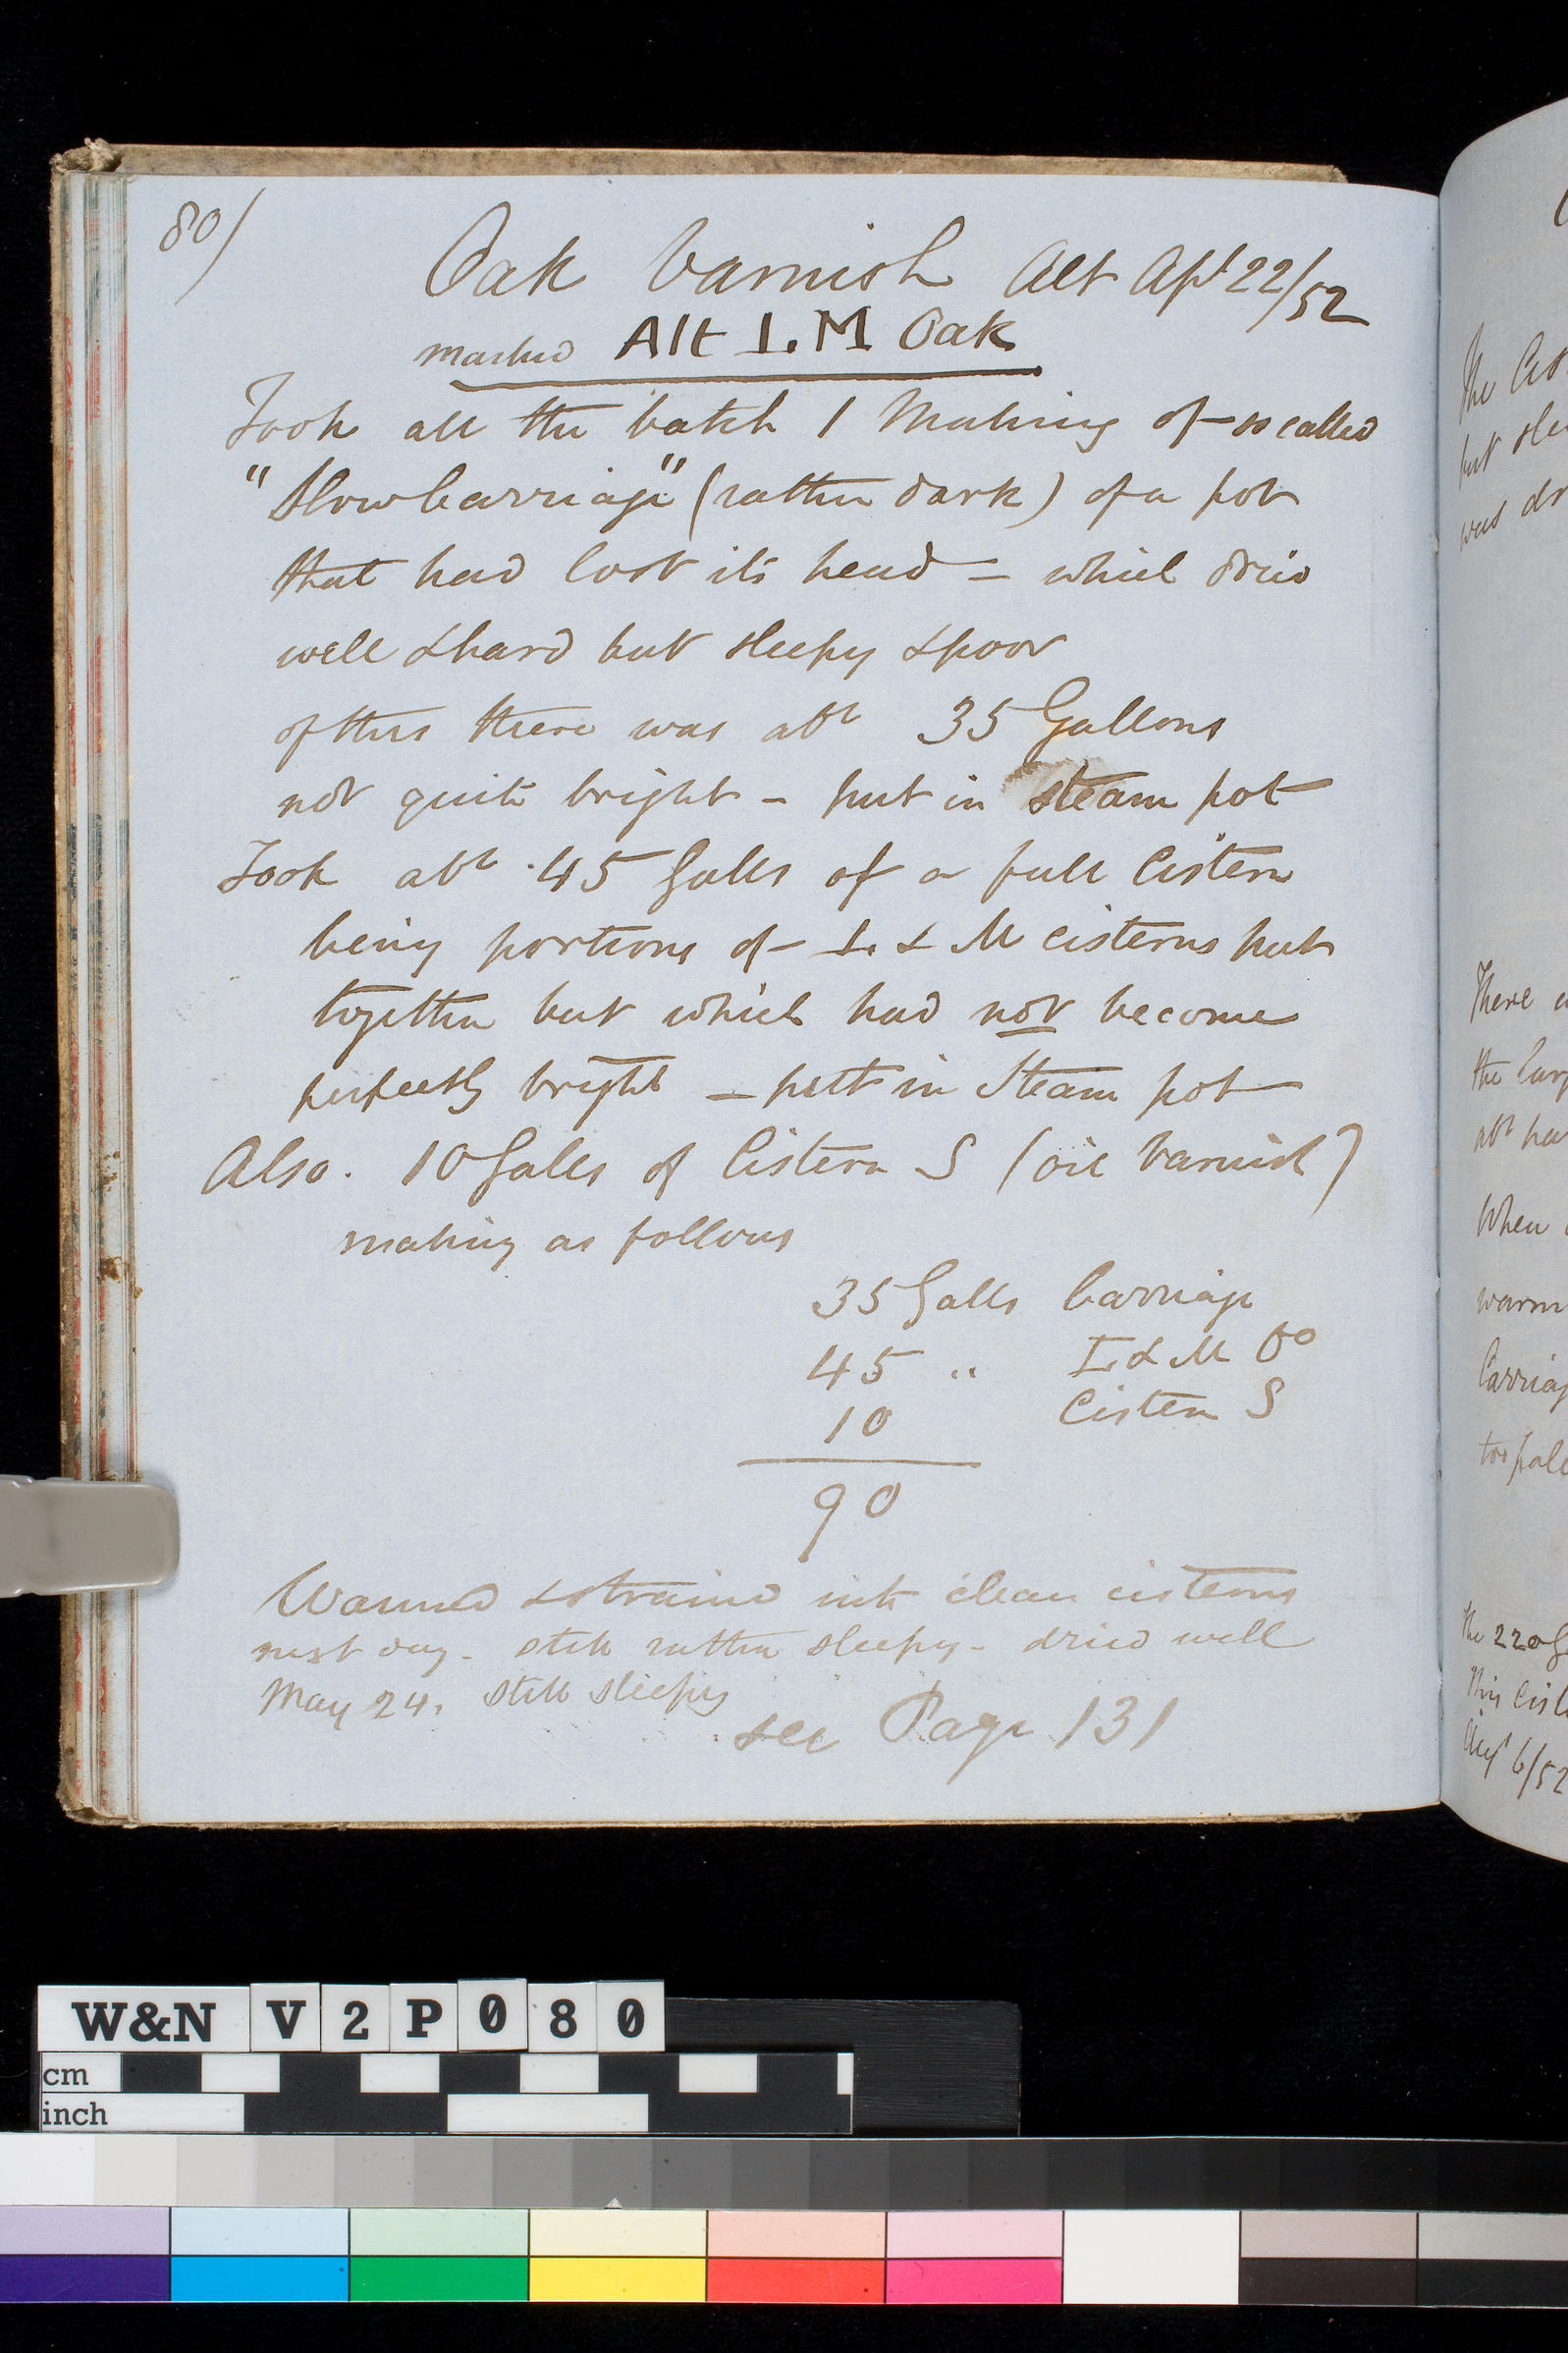 80/
Oak Varnish Alt Apl 22/52
marked Alt I. M Oak
Took all the batch 1 Making of so called
"Slow Carriage" (rather dark) of a pot
that had lost its head - which dried
well & hard but sleepy & poor
of this there was abt 35 Gallons
not quite bright - put in steam pot
Took abt 45 Galls of a full Cistern
being portions of I. & M cisterns put
together but which had not become
perfectly bright - put in Steam pot
Also. 10 Galls of Cistern S (oil Varnish)
making as follows
35 Galls Carriage
45 " I. & M Do
10 Cistern S
90
Warmed & strained into clean cisterns
next day - still rather sleepy - dried well
May 24. still sleepy
see Page 131
The
but
was
There
the
abt
When
warm
too
The 220
This
6/52
W&N V 2 P 0 8 0
cm
inch